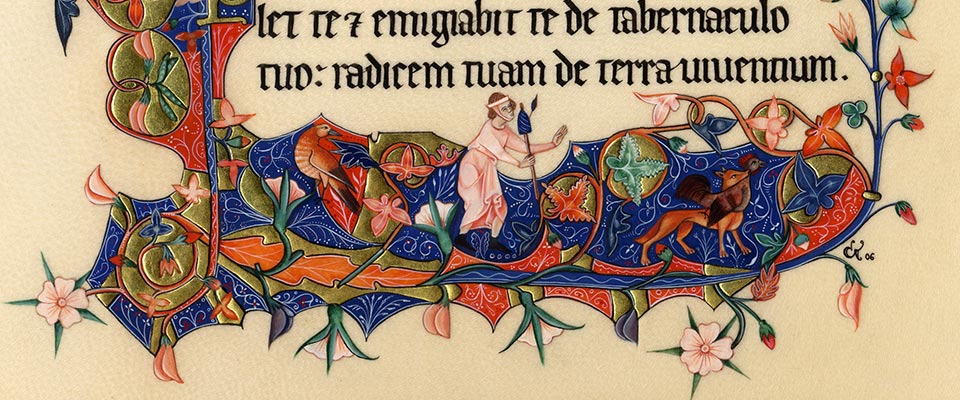 let te ⁊ emigrabit te de tabernaculo
tuo: radicem tuam de terra uiuentium.
06